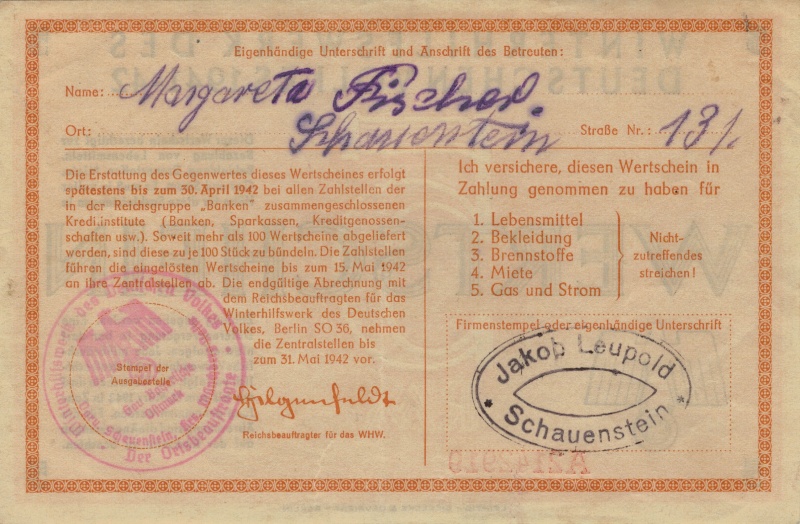 Eigenhändige Unterschrift und Anschrift des Betreuten:
Name: Margareta Fischer.
Ort: Schauenstein Straße Nr.: 131.
Die Erstattung des Gegenwertes dieses Wertscheines erfolgt
spätestens bis zum 30. April 1942 bei allen Zahlstellen der
in der Reichsgruppe „Banken" zusammengeschlossenen
Kredi.institute (Banken, Sparkassen, Kreditgenossen-
schaften usw.). Soweit mehr als 100 Wertscheine abgeliefert
werden, sind diese zu je 100 Stück zu bündeln. Die Zahlstellen
führen die eingelösten Wertscheine bis zum 15. Mai 1942
an ihre Zentralstellen ab. Die endgültige Abrechnung mit
dem Reichsbeauftragten für das
Winterhilfswerk des Deutschen
Volkes, Berlin SO 36, nehmen
die Zentralstellen bis
zum 31. Mai 1942 vor.
Stempel der
Ausgabestelle
Winterhilfswerk des Deutschen Volkes
Der Ortsbeauftragte
Hilgenfeldt
Reichsbeauftragter für das WHW.
Ich versichere, diesen Wertschein in
Zahlung genommen zu haben für
1. Lebensmittel
2. Bekleidung
3. Brennstoffe
4. Miete
5. Gas und Strom
Nicht-
zutreffendes
streichen!
Firmenstempel oder eigenhändige Unterschrift
Jakob Leupold
* Schauenstein *